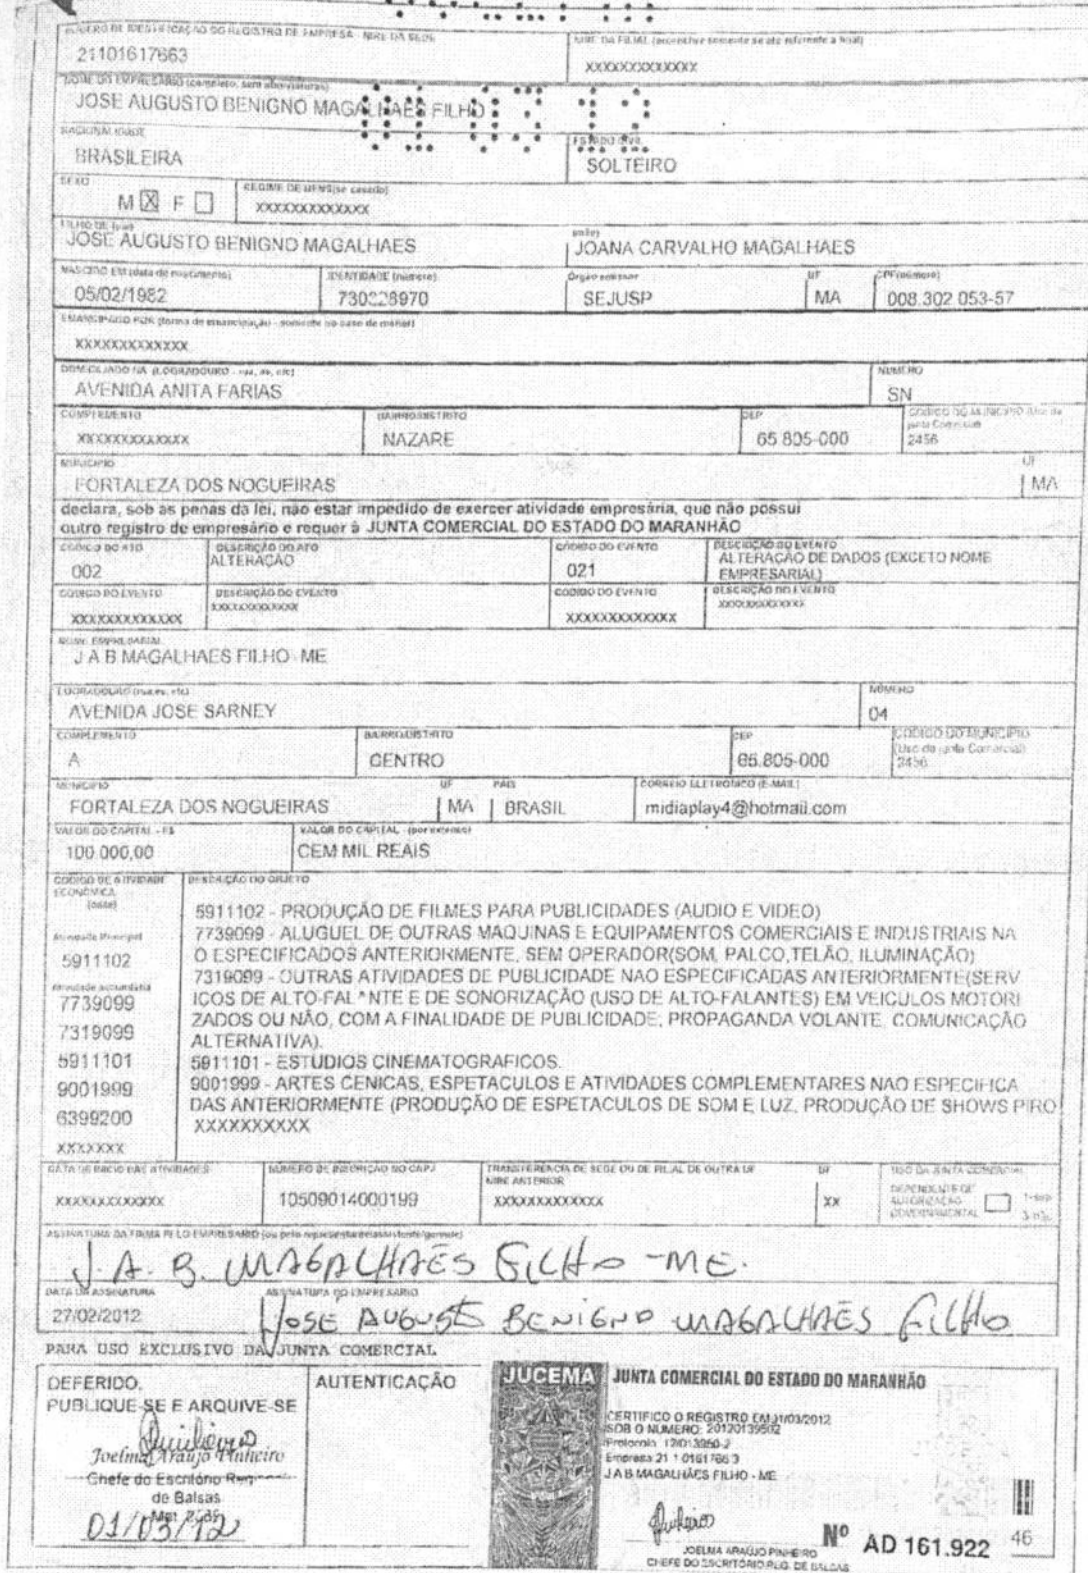 NÚMERO DE IDENTIFICAÇÃO DO REGISTRO DE EMPRESA - NIRE DA SEDE
NIRE DA FILIAL (preencher somente se ato referente a filial)
21101617663
XXXXXXXXXXXXX
NOME DO EMPRESÁRIO (completo, sem abreviaturas)
JOSE AUGUSTO BENIGNO MAGALHAES FILHO
NACIONALIDADE
ESTADO CIVIL
BRASILEIRA
SOLTEIRO
SEXO
REGIME DE BENS(se casado)
M X F
XXXXXXXXXXXXX
FILHO DE (pai)
(mãe)
JOSE AUGUSTO BENIGNO MAGALHAES
JOANA CARVALHO MAGALHAES
NASCIDO EM (data de nascimento)
IDENTIDADE (número)
Órgão emissor
UF
CPF(número)
05/02/1982
SEJUSP
MA
008.302 053-57
EMANCIPADO POR (forma de emancipação - somente no caso de menor)
XXXXXXXXXXXXX
DOMICILIADO NA (LOGRADOURO - rua, av, etc)
NUMERO
AVENIDA ANITA FARIAS
SN
COMPLEMENTO
BAIRRO/DISTRITO
CEP
CODIGO DO MUNICIPIO (Uso da junta Comercial)
XXXXXXXXXXXXX
NAZARE
65 805-000
2456
MUNICIPIO
UF
FORTALEZA DOS NOGUEIRAS
MA
declara, sob as penas da lei, não estar impedido de exercer atividade empresária, que não possui
outro registro de empresário e requer à JUNTA COMERCIAL DO ESTADO DO MARANHÃO
CÓDIGO DO ATO
DESCRIÇÃO DO ATO
CÓDIGO DO EVENTO
DESCRIÇÃO DO EVENTO
002
ALTERAÇÃO
021
ALTERAÇÃO DE DADOS (EXCETO NOME
EMPRESARIAL)
CÓDIGO DO EVENTO
DESCRIÇÃO DO EVENTO
CODIGO DO EVENTO
DESCRIÇÃO DO EVENTO
XXXXXXXXXXXXX
XXXXXXXXXXXXX
XXXXXXXXXXXXX
XXXXXXXXXXXXX
NOME EMPRESARIAL
J A B MAGALHAES FILHO - ME
LOGRADOURO (rua,av, etc)
NÚMERO
AVENIDA JOSE SARNEY
04
COMPLEMENTO
BAIRRO/DISTRITO
CEP
CODIGO DO MUNICIPIO
(Uso da junta Comercial)
A
CENTRO
65.805-000
2456
MUNICIPIO
UF
PAIS
CORREIO ELETRONICO (E-MAIL)
FORTALEZA DOS NOGUEIRAS
MA
BRASIL
midiaplay4@hotmail.com
VALOR DO CAPITAL - R$
VALOR DO CAPITAL - (por extenso)
100 000,00
CEM MIL REAIS
CODIGO DE ATIVIDADE
ECONÔMICA
(cnae)
DESCRIÇÃO DO OBJETO
Atividade Principal
5911102
Atividade secundária
7739099
7319099
5911101
9001999
6399200
XXXXXXX
5911102 - PRODUÇÃO DE FILMES PARA PUBLICIDADES (AUDIO E VIDEO)
7739099 - ALUGUEL DE OUTRAS MAQUINAS E EQUIPAMENTOS COMERCIAIS E INDUSTRIAIS NA
O ESPECIFICADOS ANTERIORMENTE, SEM OPERADOR(SOM, PALCO,TELÃO, ILUMINAÇÃO)
7319099 - OUTRAS ATIVIDADES DE PUBLICIDADE NAO ESPECIFICADAS ANTERIORMENTE(SERV
IÇOS DE ALTO-FALANTE E DE SONORIZAÇÃO (USO DE ALTO-FALANTES) EM VEICULOS MOTORI
ZADOS OU NÃO, COM A FINALIDADE DE PUBLICIDADE; PROPAGANDA VOLANTE, COMUNICAÇÃO
ALTERNATIVA).
5911101 - ESTUDIOS CINEMATOGRAFICOS.
9001999 - ARTES CENICAS, ESPETACULOS E ATIVIDADES COMPLEMENTARES NAO ESPECIFICA
DAS ANTERIORMENTE (PRODUÇÃO DE ESPETACULOS DE SOM E LUZ, PRODUÇÃO DE SHOWS PIRO
XXXXXXXXXX
DATA DE INICIO DAS ATIVIDADES
NUMERO DE INSCRIÇÃO NO CNPJ
TRANSFERENCIA DE SEDE OU DE FILIAL DE OUTRA UF
NIRE ANTERIOR
UF
USO DA JUNTA COMERCIAL
XXXXXXXXXXXXX
10509014000199
XXXXXXXXXXXXX
XX
DEPENDENTE DE
AUTORIZAÇÃO
GOVERNAMENTAL
1-sim
3-não
ASSINATURA DA FIRMA PELO EMPRESÁRIO (ou pelo representante/assistente/gerente)
J. A. B. MAGALHAES FILHO - ME.
DATA DA ASSINATURA
ASSINATURA DO EMPRESARIO
27/02/2012
JOSE AUGUSTO BENIGNO MAGALHAES FILHO
PARA USO EXCLUSIVO DA JUNTA COMERCIAL
DEFERIDO.
PUBLIQUE-SE E ARQUIVE-SE
Joelma Araújo Pinheiro
Chefe do Escritório
de Balsas
01/03/12
AUTENTICAÇÃO
JUCEMA
JUNTA COMERCIAL DO ESTADO DO MARANHÃO
CERTIFICO O REGISTRO EM 01/03/2012
SOB O NÚMERO: 20120139502
Protocolo 12/013950-2
Empresa 21 1 0161766 3
J A B MAGALHÃES FILHO - ME
JOELMA ARAÚJO PINHEIRO
CHEFE DO ESCRITÓRIO REG. DE BALSAS
Nº AD 161.922
46